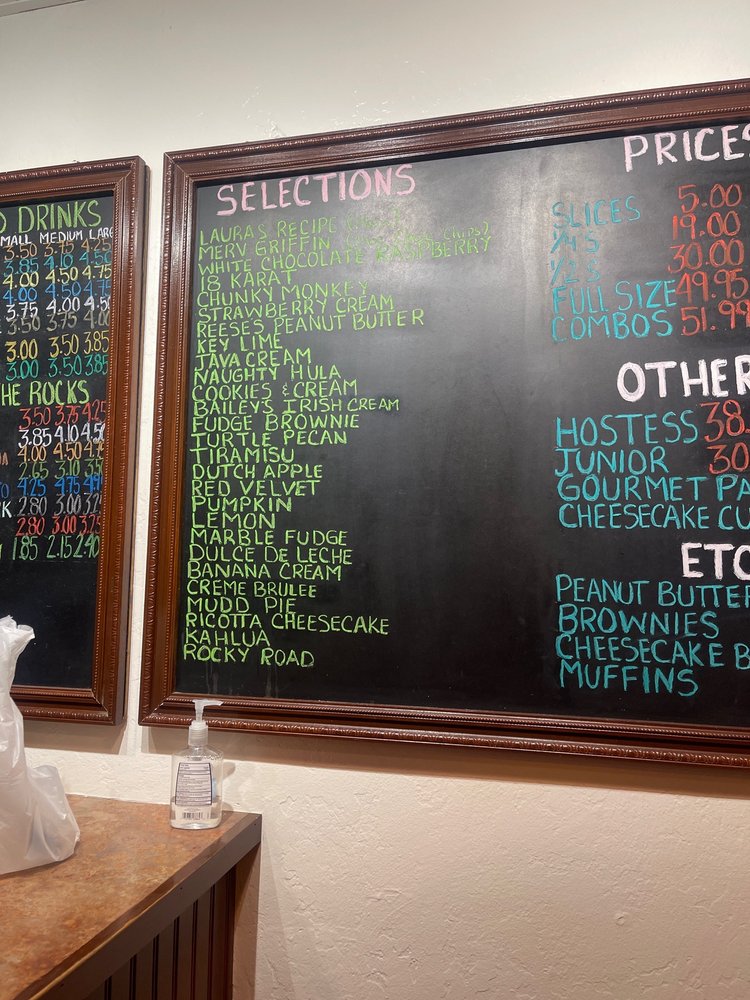 D DRINKS
SMALL MEDIUM LARG
3.50 3.75 4.25
3.85 4.10 4.50
4.00 4.50 4.75
4.00 4.50 4.75
3.75 4.00 4.50
3.50 3.75 4.00
3.00 3.50 3.85
3.00 3.50 3.85
HE ROCKS
3.50 3.75 4.25
3.85 4.10 4.50
4.00 4.50 4.75
2.65 3.10 3.50
4.25 4.75 4.95
2.80 3.00 3.25
2.80 3.00 3.25
1.85 2.15 2.40
SELECTIONS
LAURAS RECIPE
MERV GRIFFIN
WHITE CHOCOLATE RASPBERRY
18 KARAT
CHUNKY MONKEY
STRAWBERRY CREAM
REESES PEANUT BUTTER
KEY LIME
JAVA CREAM
NAUGHTY HULA
COOKIES & CREAM
BAILEYS IRISH CREAM
FUDGE BROWNIE
TURTLE PECAN
TIRAMISU
DUTCH APPLE
RED VELVET
PUMPKIN
LEMON
MARBLE FUDGE
DULCE DE LECHE
BANANA CREAM
CREME BRULEE
MUDD PIE
RICOTTA CHEESECAKE
KAHLUA
ROCKY ROAD
PRICES
SLICES 5.00
1/4 S 19.00
1/2 S 30.00
FULL SIZE 49.95
COMBOS 51.99
OTHER
HOSTESS 38.
JUNIOR 30
GOURMET PA
CHEESECAKE CU
ETC
PEANUT BUTTER
BROWNIES
CHEESECAKE B
MUFFINS